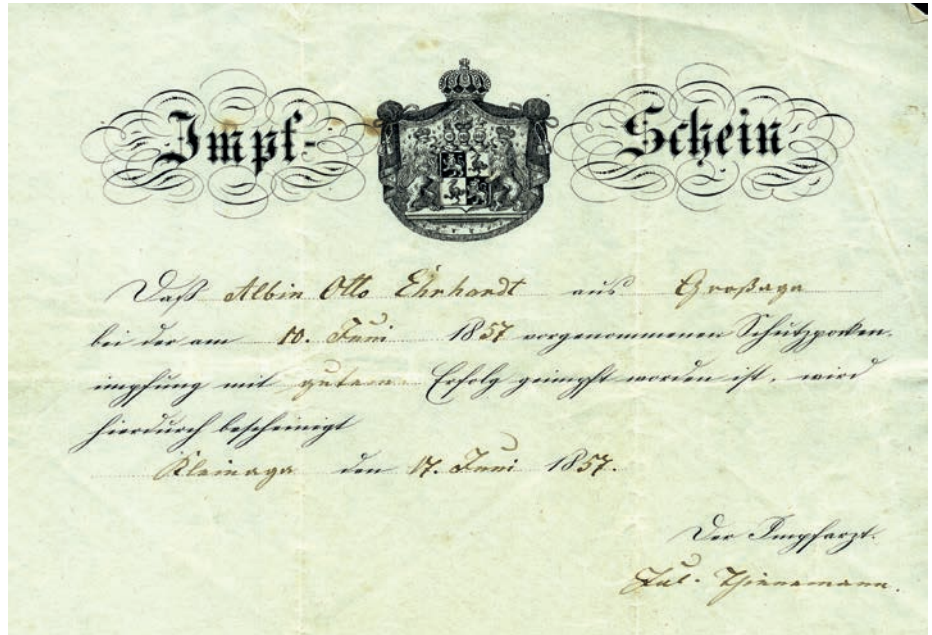 Impf-Schein
Daß Albin Otto Ehrhardt aus Großaga
bei der am 10. Juni 1857 vorgenommenen Schutzpocken-
impfung mit gutem Erfolg geimpft worden ist, wird
hierdurch bescheinigt
Kleinaga den 17. Juni 1857.
Der Impfarzt.
Jul. Thienemann.